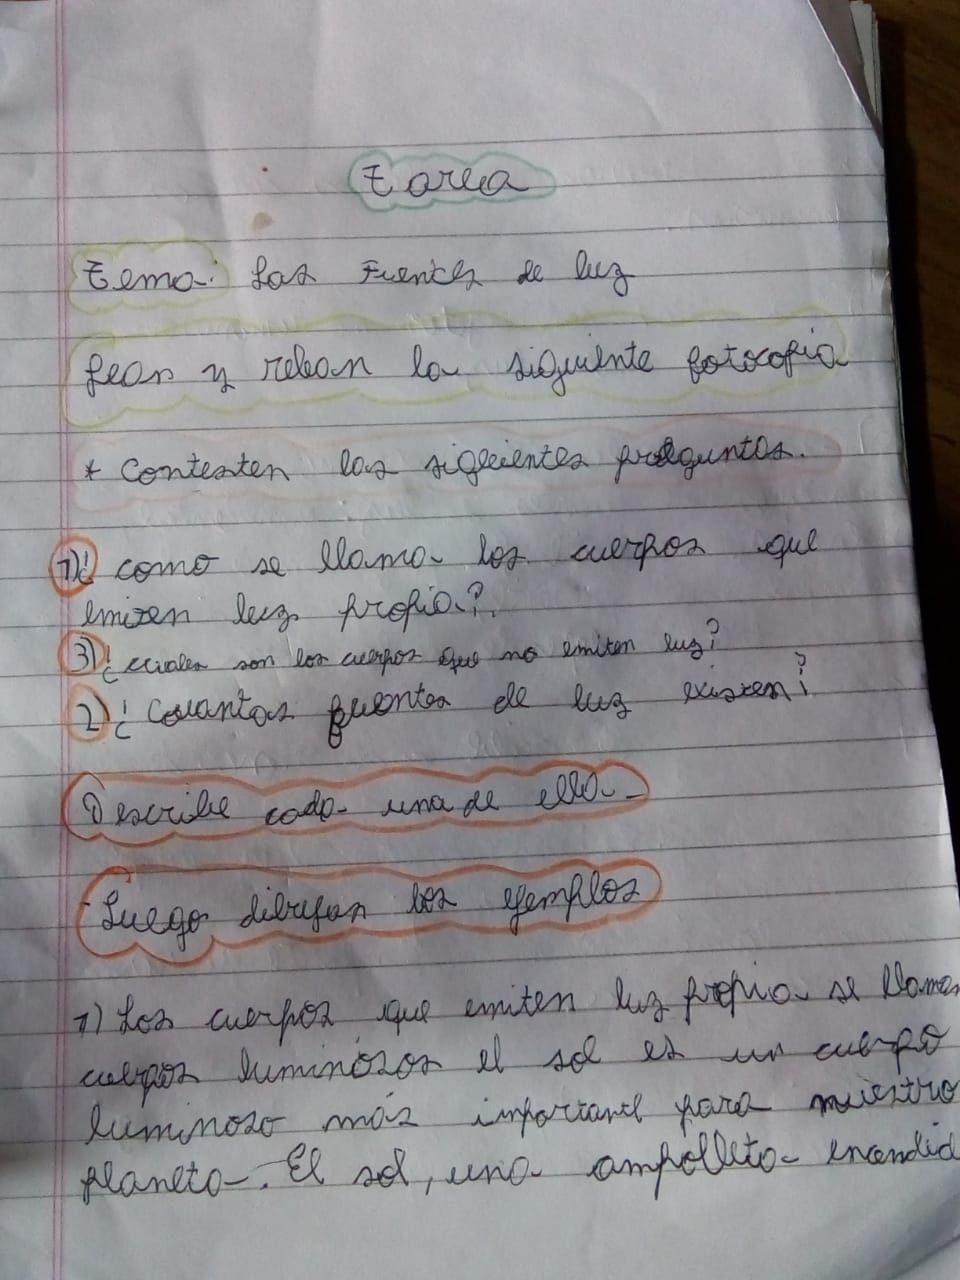 tarea
tema: Las Fuentes de luz
Lean y relean la siguiente fotocopia
* Contesten las siguientes preguntas.
1)¿ como se llama los cuerpos que
emiten luz propia?.
3)¿ cuales son los cuerpos que no emiten luz?
2)¿ Cuantas fuentes de luz existen?
Describe cada una de ella
Luego dibujan los ejemplos
1) Los cuerpos que emiten luz propia se llaman
cuerpos luminosos el sol es un cuerpo
luminoso más important para nuestro
planeta. El sol, una ampolleta encendid